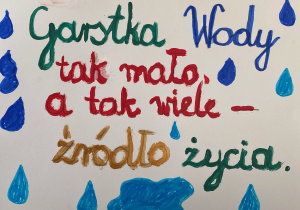 Garstka Wody
tak mało,
a tak wiele –
źródło życia.